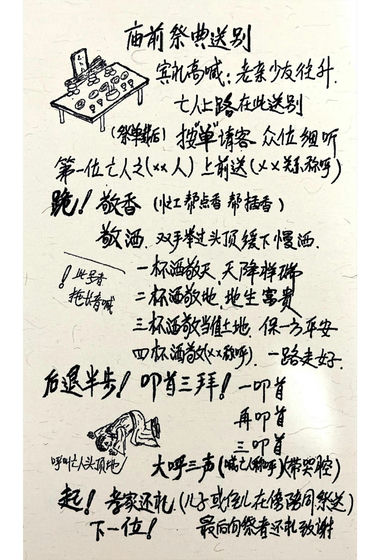 庙前祭典送别
宾礼高喊：老亲少友往升
亡人上路在此送别
(祭单载后) 按"单"请客 众位细听
第一位亡人之(××人) 上前送 (××关系称呼)
跪！敬香 (忙工帮点香 帮插香)
敬酒. 双手举过头顶缓下慢洒.
！此号者
拖长音喊
一杯酒敬天, 天降祥瑞
二杯酒敬地, 地生富贵
三杯酒敬当值土地, 保一方平安
四杯酒敬(××称呼), 一路走好.
后退半步！叩首三拜！一叩首
再叩首
三叩首
呼叫亡人头顶地
大呼三声 (喊亡人称呼)(带哭腔)
起！孝家还礼. (儿子或侄儿在傍陪同祭送)
下一位！ 最后向祭者还礼致谢